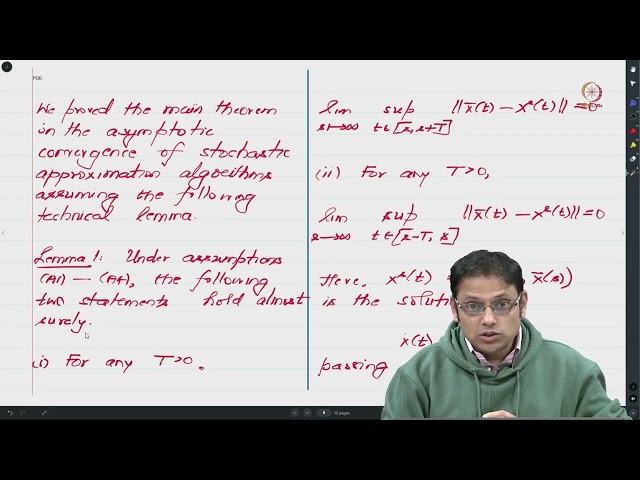 P06
We proved the main theorem
in the asymptotic
convergence of stochastic
approximation algorithms
assuming the following
technical lemma.
Lemma 1: Under assumptions
(A1) — (A4), the following
two statements hold almost
surely.
(i) For any T>0,
lim sup ||x̄(t) − xˢ(t)|| = 0
s→∞ t∈[s, s+T]
(ii) For any T>0,
lim sup ||x̄(t) − xˢ(t)|| = 0
s→∞ t∈[s−T, s]
Here, xˢ(t) x̄(s))
is the solut
ẋ(t)
passing
10 pages